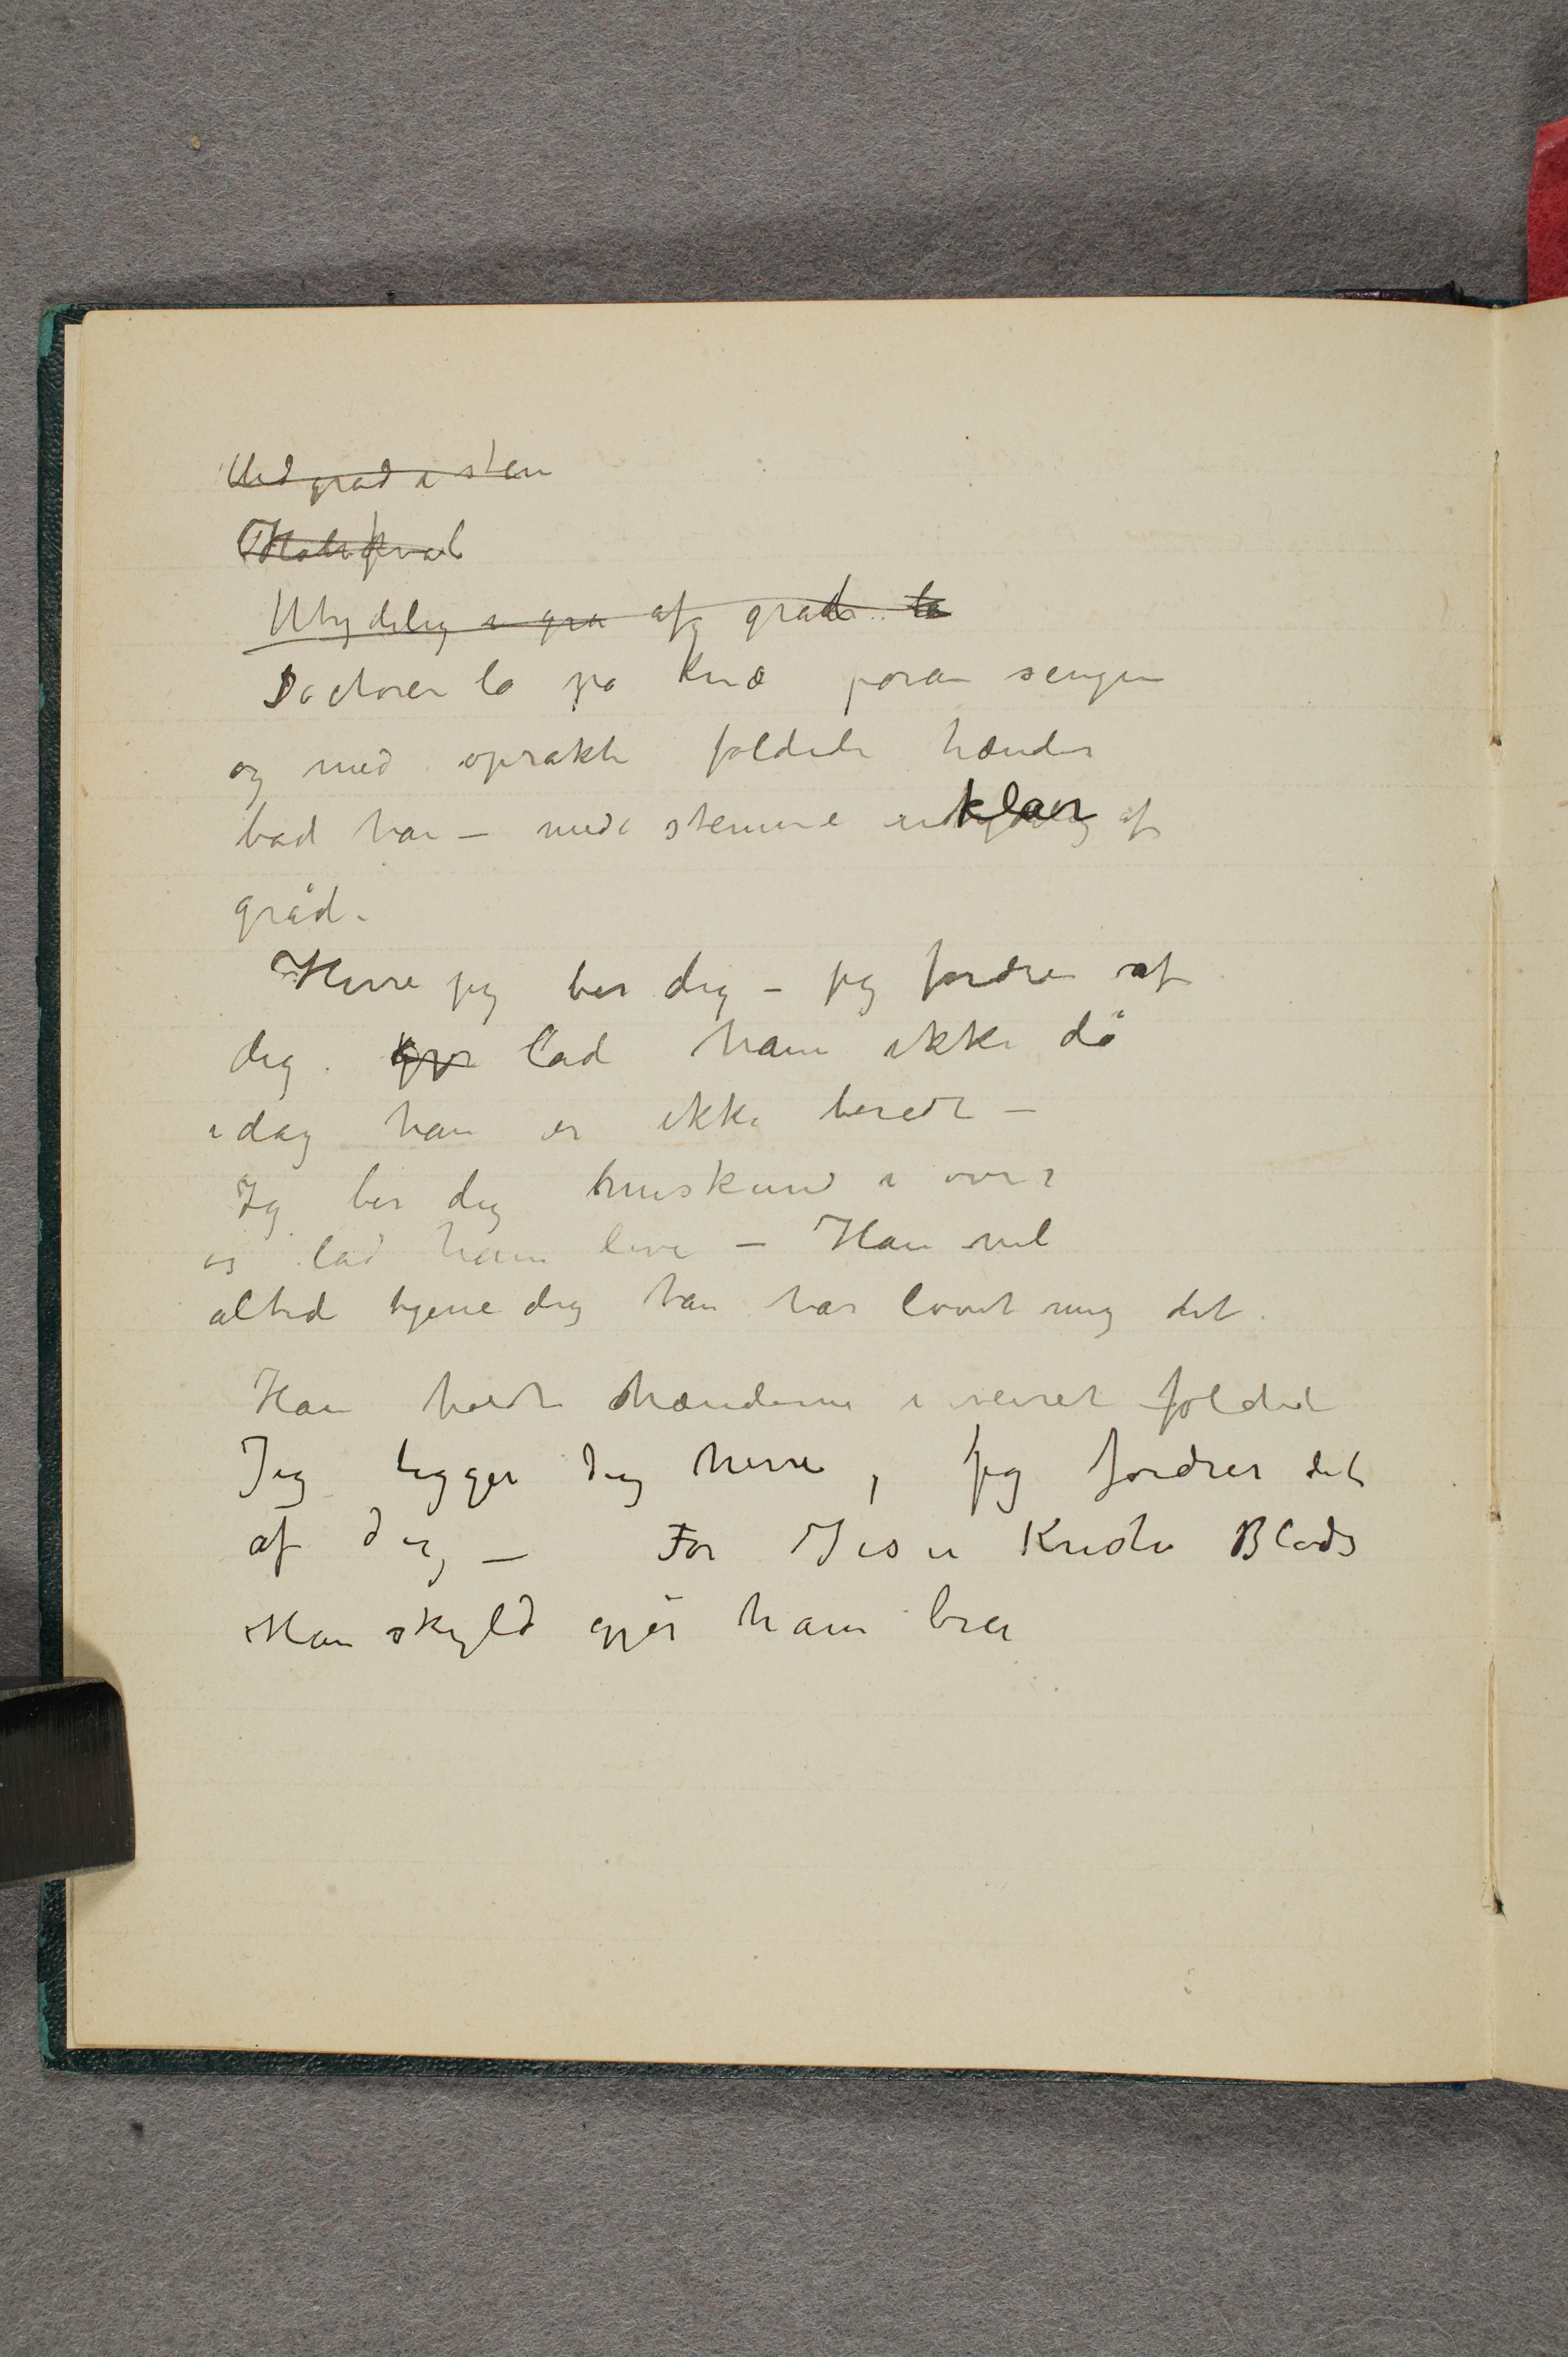 Med gråd i stem
Utydelig i grå af gråd la
Doctoren lå på knæ foran sengen
og med oprakte foldede hænder
bad han – med stemme uklar af
gråd.
Herre jeg ber dig – jeg fordrer af
dig. gjør lad ham ikke dö
idag han er ikke beredt –
Jeg ber dig
og lad ham leve – Han vil
altid tjene dig han har lovet mig det.
Han holdt hænderne i veiret foldet
Jeg tigger dig herre, jeg fordrer det
af dig – For Jesu Kristi Blods
Han skyld gjör ham bra